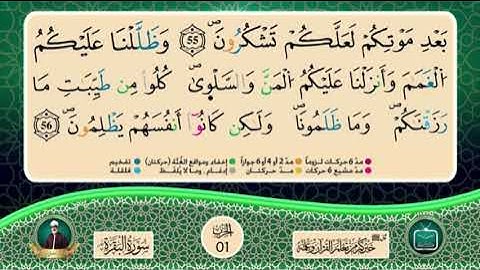 بَعْدِ مَوْتِكُمْ لَعَلَّكُمْ تَشْكُرُونَ ۖ 55 وَظَلَّلْنَا عَلَيْكُمُ
الْغَمَٰمَ وَأَنزَلْنَا عَلَيْكُمُ الْمَنَّ وَالسَّلْوَىٰ ۖ كُلُوا مِن طَيِّبَٰتِ مَا
رَزَقْنَٰكُمْ ۖ وَمَا ظَلَمُونَا ۖ وَلَٰكِن كَانُوٓا أَنفُسَهُمْ يَظْلِمُونَ ۖ 56
مدّ 6 حركات لزوماً مدّ 2 أو 4 أو 6 جوازاً إخفاء ومواقع الغُنَّة (حركتان) تفخيم
مدّ مشبع 6 حركات مدّ حركتان إدغام، وما لا يُلفظ قلقلة
سُورَةُ الْبَقَرَةِ
الحزب
01
خيركم من تعلم القرآن وعلمه